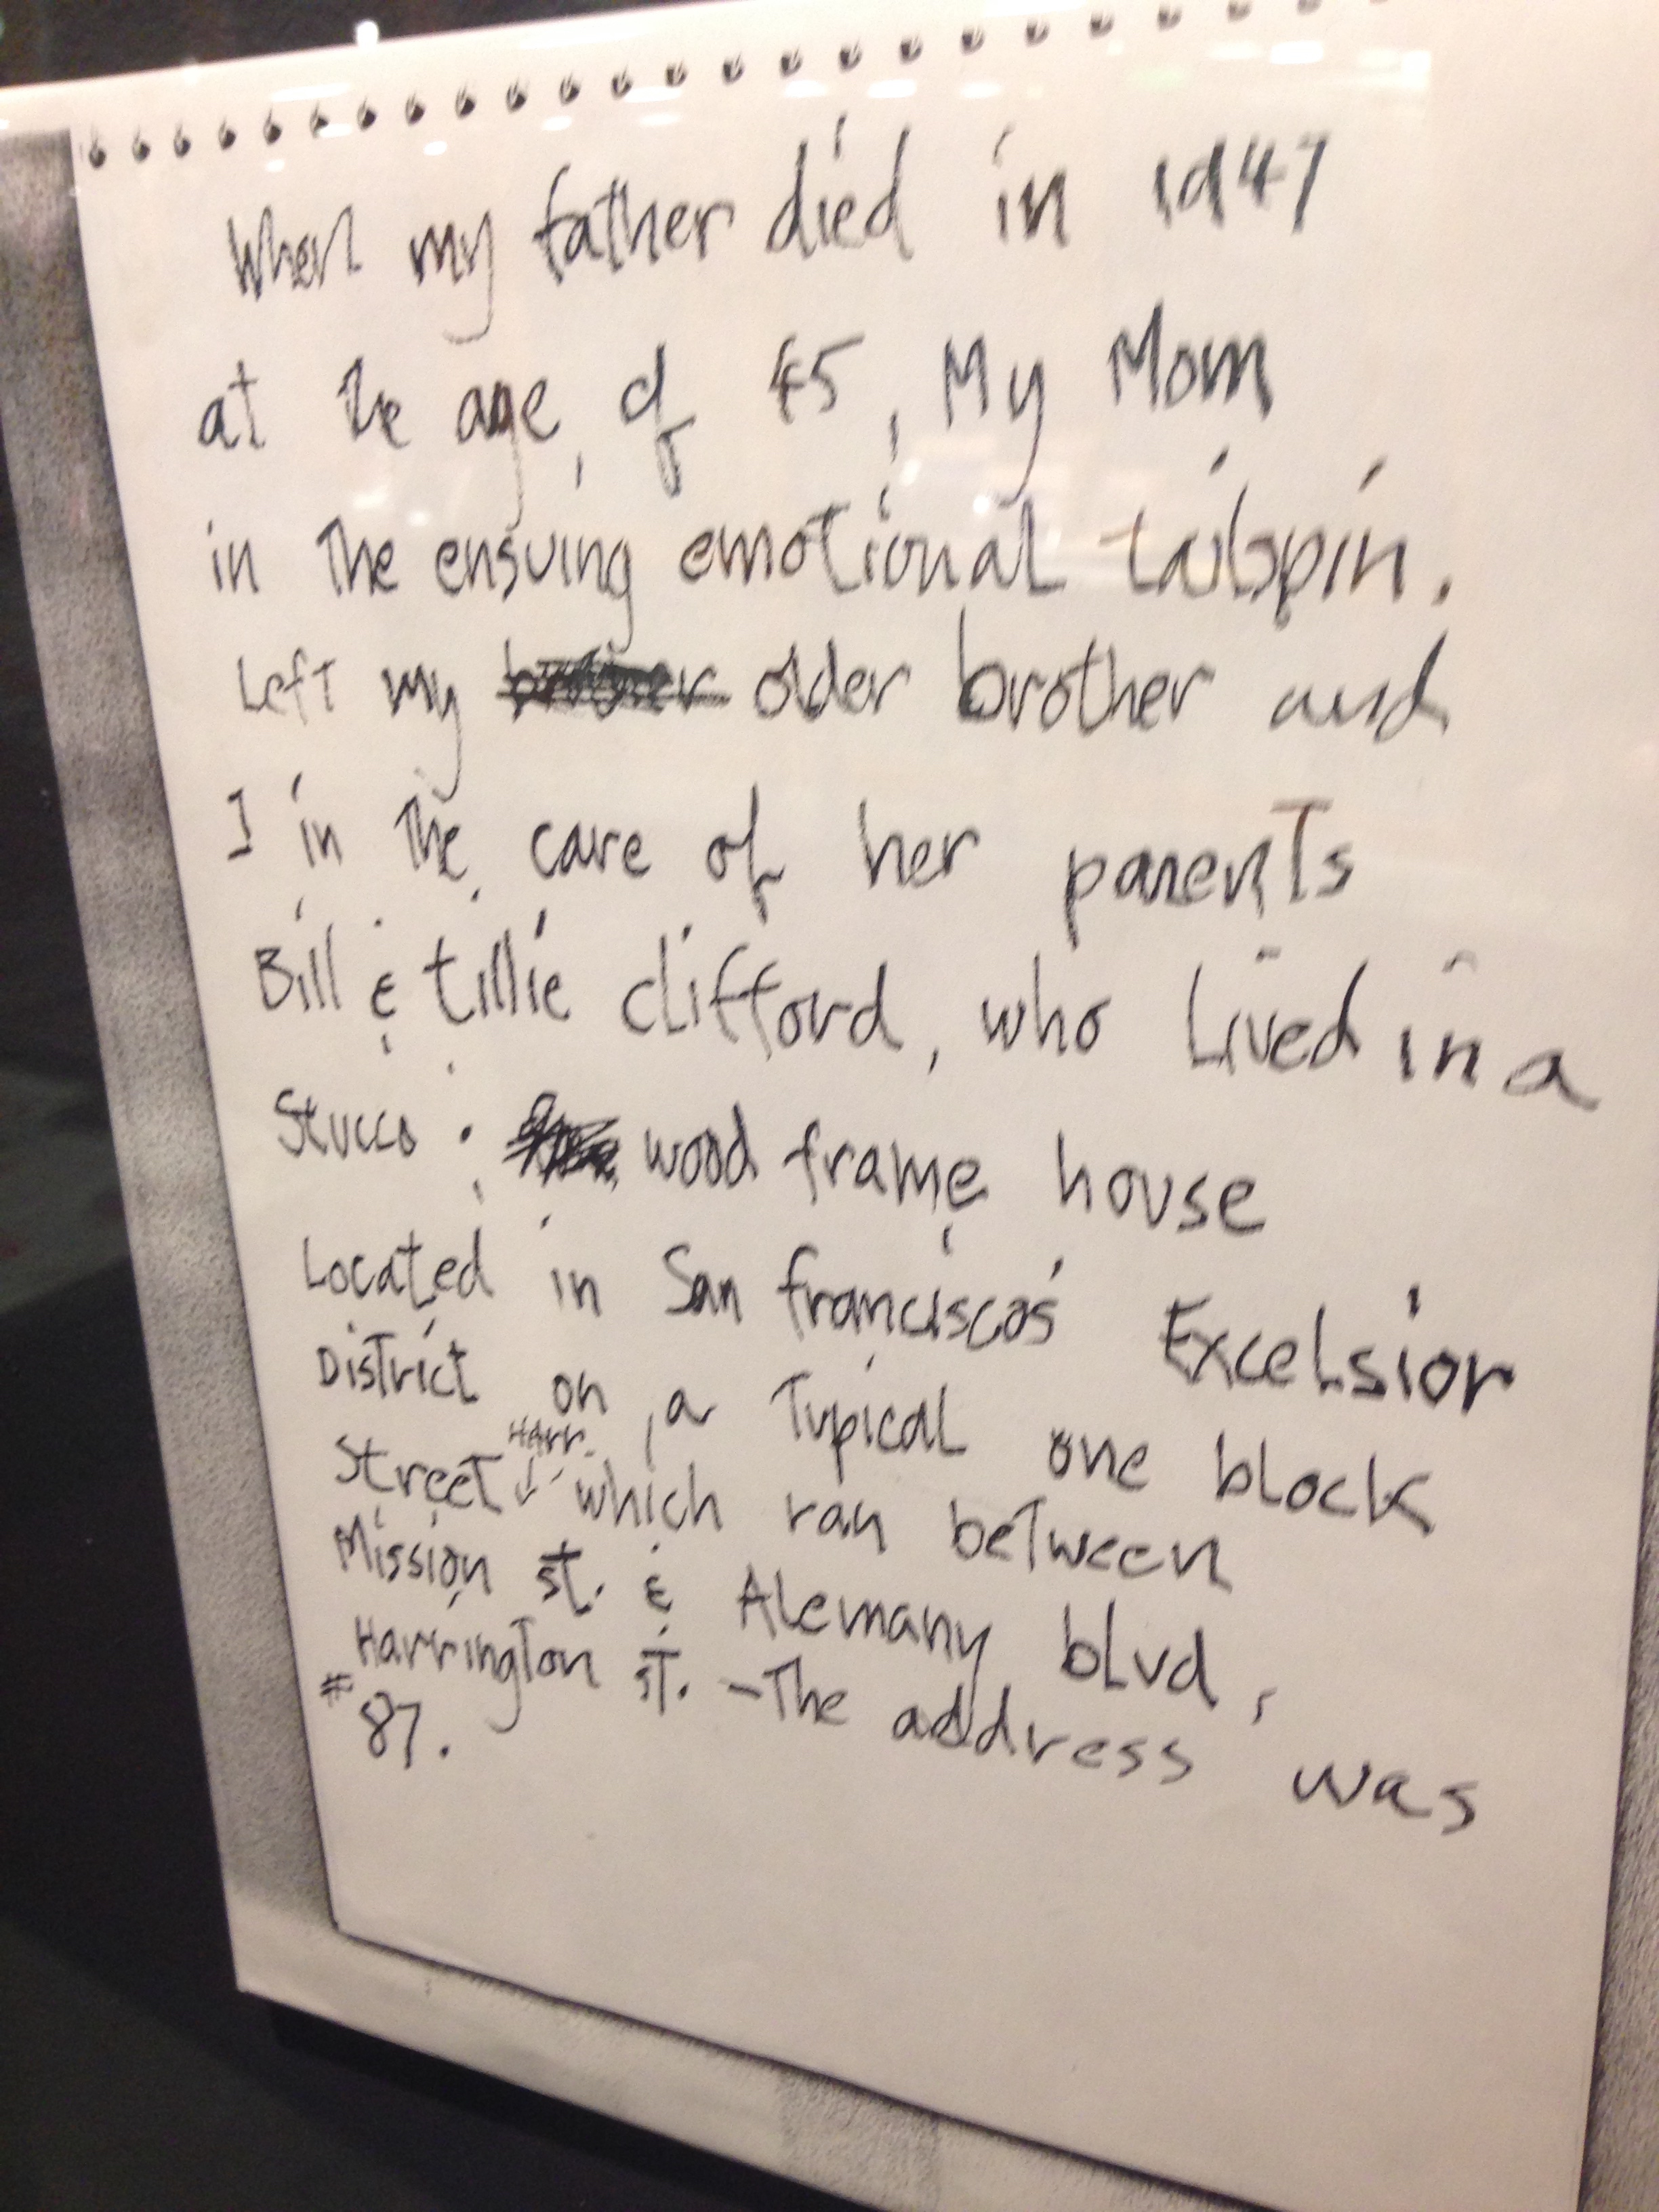 When my father died in 1947
at the age of 45, My Mom
in the ensuing emotional tailspin.
Left my older brother and
I in the care of her parents
Bill & tillie clifford, who Lived in a
Stucco wood frame house
Located in San franciscos' ExceLsior
District on a Typical one block
Harr.
Street which ran between
Mission st. & ALemany bLvd,
Harrington st. - The address was
# 87.